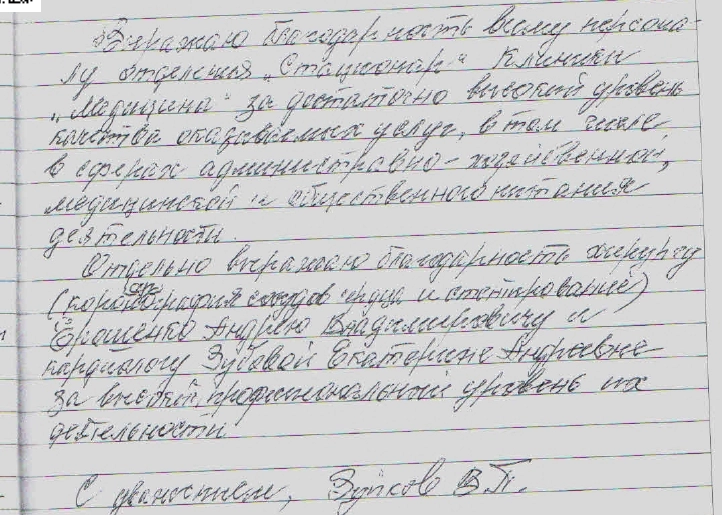 Выражаю благодарность всему персона-
лу отделения „Стационар" Клиники
„Медицина" за достаточно высокий уровень
качества оказываемых услуг, в том числе
в сферах административно-хозяйственной,
медицинской и общественного питания
деятельности.
Отдельно выражаю благодарность хирургу
(коронарография сосудов сердца и стентирование)
Ерошенко Андрею Владимировичу и
кардиологу Зубовой Екатерине Андреевне
за высокий профессиональный уровень их
деятельности
С уважением, Зуйков В.П.